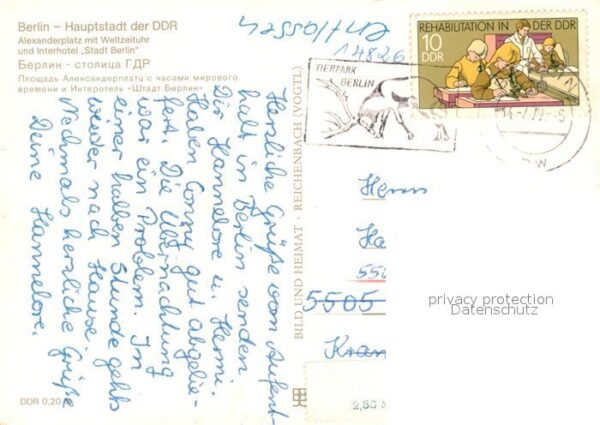 Berlin – Hauptstadt der DDR
Alexanderplatz mit Weltzeituhr
und Interhotel „Stadt Berlin“
Берлин - столица ГДР
Площадь Александерплатц с часами мирового
времени и Интеротель «Штадт Берлин»
entlassen
14826
REHABILITATION IN DER DDR
10
DDR
TIERPARK
BERLIN
Herzliche Grüße vom Aufent-
halt in Berlin senden
Dir Hannelore u. Henni.
Haben Conny gut abgelie-
fert. Die Übernachtung
war ein Problem. In
einer halben Stunde gehts
wieder nach Hause.
Nochmals herzliche Grüße
Deine Hannelore.
BILD UND HEIMAT · REICHENBACH (VOGTL)
Herrn
Ha
550
5505
Kran
privacy protection
Datenschutz
DDR 0,20
2,50